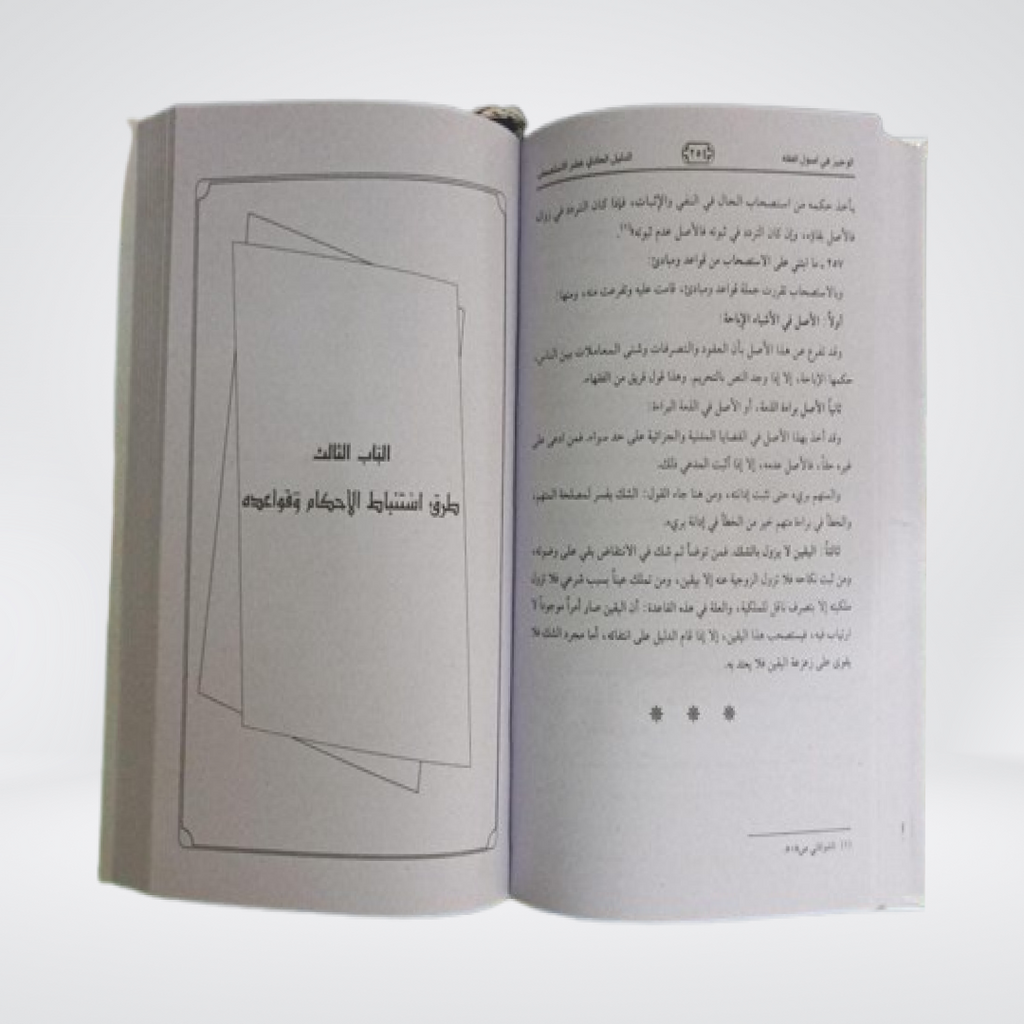 الوجيز في أصول الفقه
٢٥٤
الدليل الحادي عشر الاستصحاب
يأخذ حكمه من استصحاب الحال في النفي والإثبات، فإذا كان التردد في زواله
فالأصل بقاؤه، وإن كان التردد في ثبوته فالأصل عدم ثبوته(١).
٢٥٧ ـ ما ابتني على الاستصحاب من قواعد ومبادئ:
وبالاستصحاب تقررت جملة قواعد ومبادئ، قامت عليه وتفرعت منه، ومنها:
أولاً: الأصل في الأشياء الإباحة:
وقد تفرع عن هذا الأصل بأن العقود والتصرفات وشتى المعاملات بين الناس،
حكمها الإباحة، إلا إذا وجد النص بالتحريم. وهذا قول فريق من الفقهاء.
ثانياً الأصل براءة الذمة، أو الأصل في الذمة البراءة:
وقد أخذ بهذا الأصل في القضايا المدنية والجزائية على حد سواء. فمن ادعى على
غيره حقاً، فالأصل عدمه، إلا إذا أثبت المدعي ذلك.
والمتهم بريء حتى تثبت إدانته، ومن هنا جاء القول: الشك يفسر لمصلحة المتهم،
والخطأ في براءة متهم خير من الخطأ في إدانة بريء.
ثالثاً: اليقين لا يزول بالشك. فمن توضأ ثم شك في الانتقاض بقي على وضوئه،
ومن ثبت نكاحه فلا تزول الزوجية عنه إلا بيقين، ومن تملك عيناً بسبب شرعي فلا تزول
ملكيته إلا بتصرف ناقل للملكية، والعلة في هذه القاعدة: أن اليقين صار أمراً موجوداً لا
ارتياب فيه، فيستصحب هذا اليقين، إلا إذا قام الدليل على انتفائه، أما مجرد الشك فلا
يقوى على زعزعة اليقين فلا يعتد به.
(١) الشوكاني ص
الباب الثالث
طرق استنباط الأحكام وقواعده